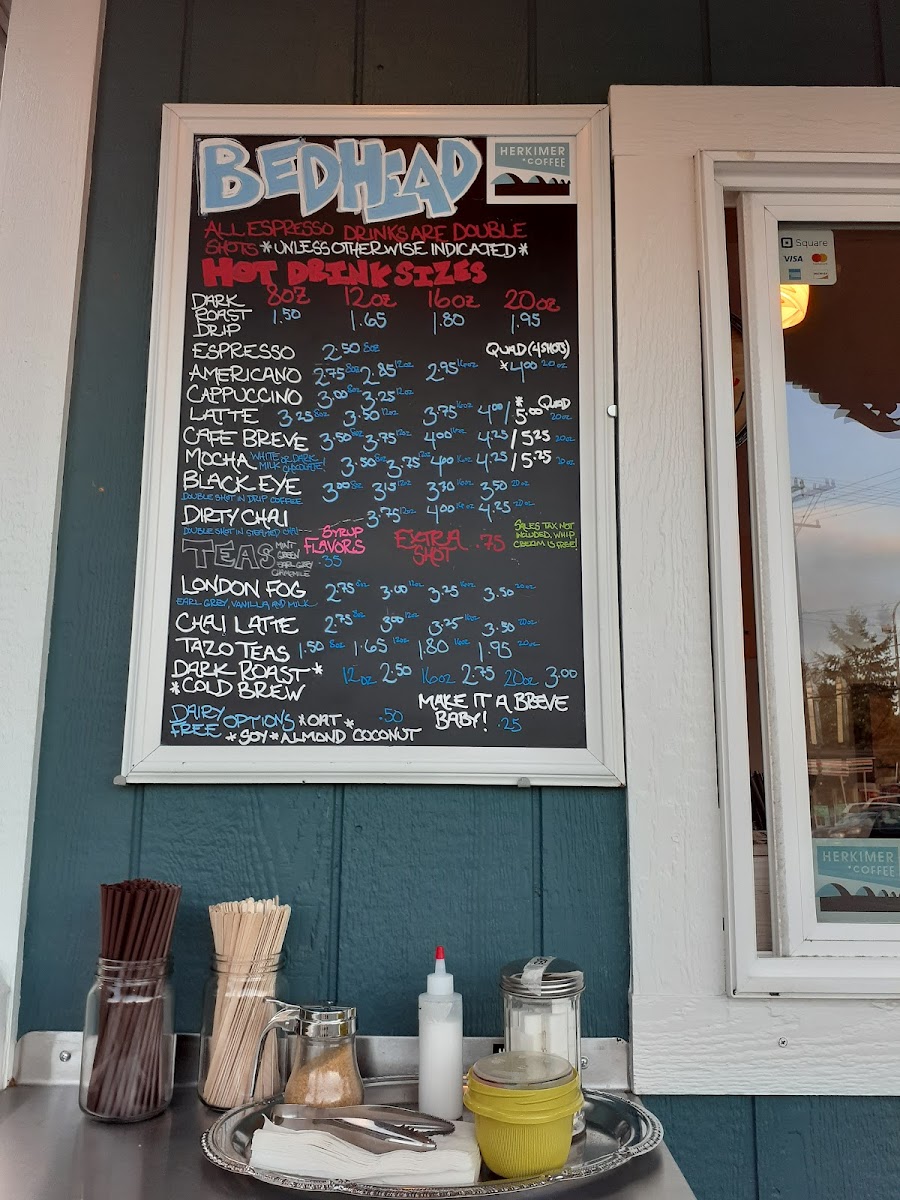 BEDHEAD
HERKIMER
COFFEE
ALL ESPRESSO DRINKS ARE DOUBLE
SHOTS *UNLESS OTHERWISE INDICATED*
HOT DRINK SIZES
8oz 12oz 16oz 20oz
DARK
ROAST 1.50 1.65 1.80 1.95
DRIP
ESPRESSO 2.50 8oz QUAD (4 SHOTS)
AMERICANO 2.75 8oz 2.85 12oz 2.95 16oz *4.00 20oz
CAPPUCCINO 3.00 8oz 3.25 12oz * QUAD
LATTE 3.25 8oz 3.50 12oz 3.75 16oz 4.00/5.00 20oz
CAFE BREVE 3.50 8oz 3.75 12oz 4.00 16oz 4.25/5.25 20oz
MOCHA WHITE OR DARK MILK CHOCOLATE! 3.50 8oz 3.75 12oz 4.00 16oz 4.25/5.25 20oz
BLACK EYE 3.00 8oz 3.15 12oz 3.30 16oz 3.50 20oz
DOUBLE SHOT IN DRIP COFFEE
DIRTY CHAI 3.75 12oz 4.00 16oz 4.25 20oz
DOUBLE SHOT IN STEAMED CHAI
TEAS MINT
GREEN
EARL GREY
CHAMOMILE
SYRUP
FLAVORS
.35
EXTRA
SHOT .75
SALES TAX NOT
INCLUDED, WHIP
CREAM IS FREE!
LONDON FOG 2.75 8oz 3.00 12oz 3.25 16oz 3.50 20oz
EARL GREY, VANILLA AND MILK
CHAI LATTE 2.75 8oz 3.00 12oz 3.25 16oz 3.50 20oz
TAZO TEAS 1.50 8oz 1.65 12oz 1.80 16oz 1.95 20oz
DARK ROAST* 12oz 2.50 16oz 2.75 20oz 3.00
*COLD BREW
DAIRY
FREE OPTIONS *OAT* .50
*SOY *ALMOND COCONUT
MAKE IT A BREVE
BABY! .25
Square
VISA
HERKIMER
COFFEE